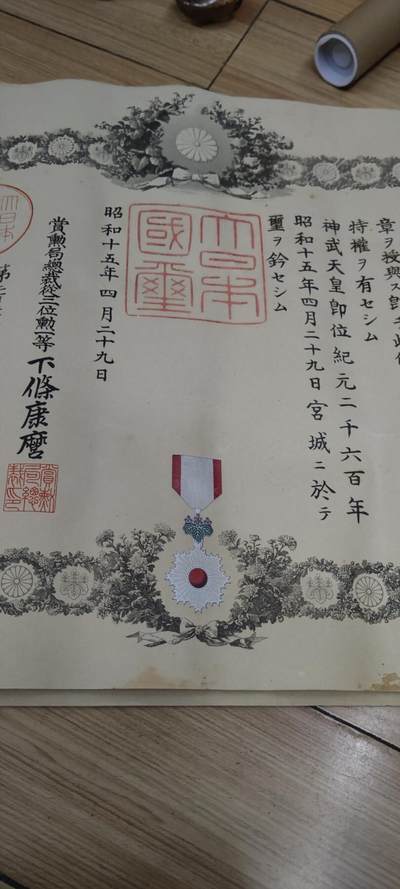 章ヲ授與ス即チ此
特權ヲ有セシム
神武天皇即位紀元二千六百年
昭和十五年四月二十九日宮城ニ於テ
璽ヲ鈐セシム
大日本
國璽
昭和十五年四月二十九日
賞勳局總裁從三位勳一等下條康麿
賞勳
局總
裁印
第二